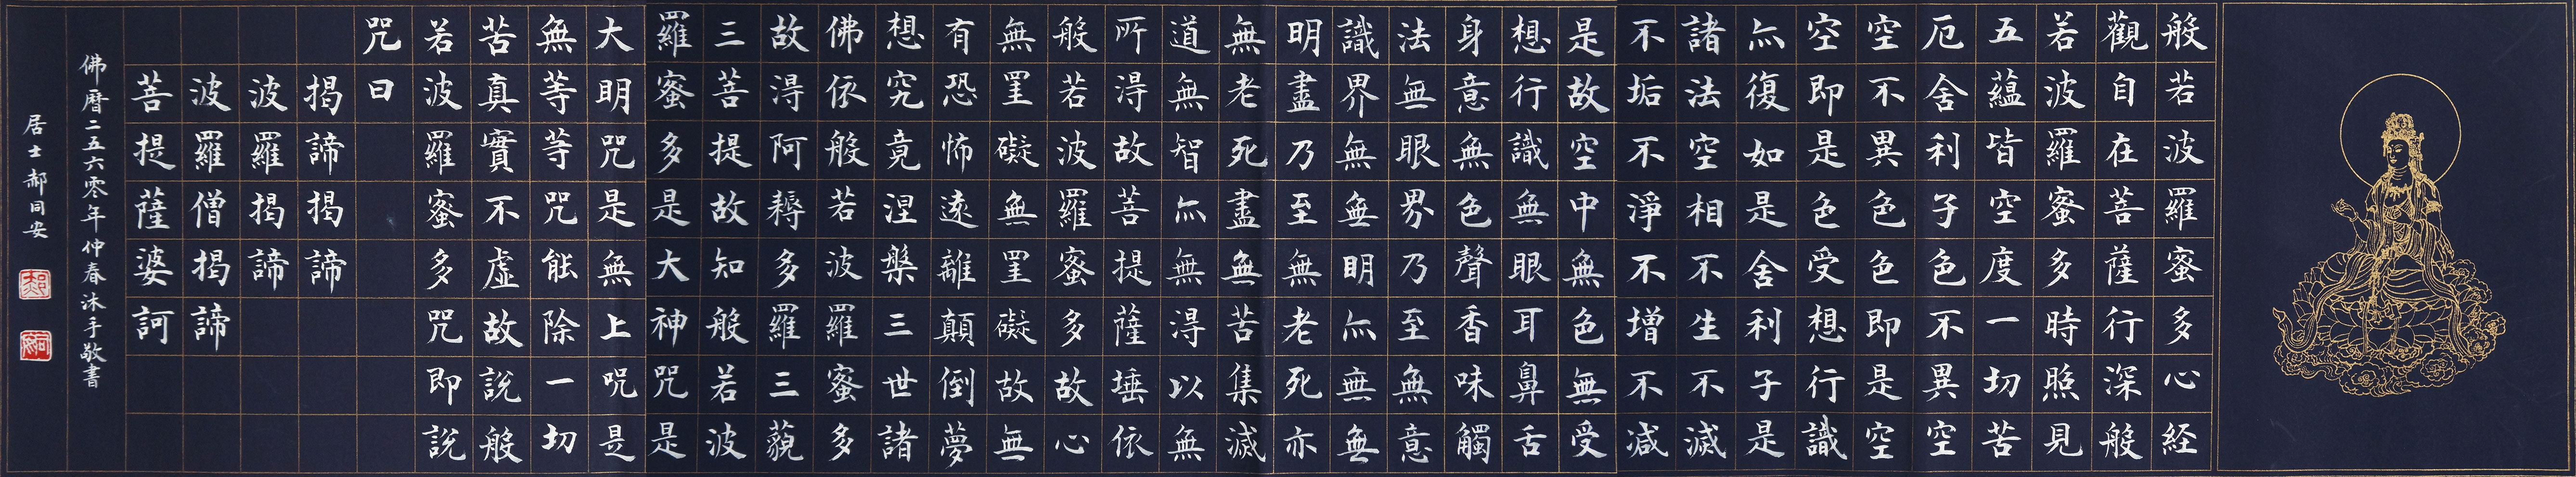 般若波羅蜜多心経
觀自在菩薩行深般
若波羅蜜多時照見
五蘊皆空度一切苦
厄舍利子色不異空
空不異色色即是空
空即是色受想行識
亦復如是舍利子是
諸法空相不生不滅
不垢不淨不增不減
是故空中無色無受
想行識無眼耳鼻舌
身意無色聲香味觸
法無眼界乃至無意
識界無無明亦無無
明盡乃至無老死亦
無老死盡無苦集滅
道無智亦無得以無
所得故菩提薩埵依
般若波羅蜜多故心
無罣礙無罣礙故無
有恐怖遠離顛倒夢
想究竟涅槃三世諸
佛依般若波羅蜜多
故得阿耨多羅三藐
三菩提故知般若波
羅蜜多是大神咒是
大明咒是無上咒是
無等等咒能除一切
苦真實不虛故說般
若波羅蜜多咒即說
咒曰
揭諦揭諦
波羅揭諦
波羅僧揭諦
菩提薩婆訶
佛曆二五六零年仲春沐手敬書
居士郝同安
郝